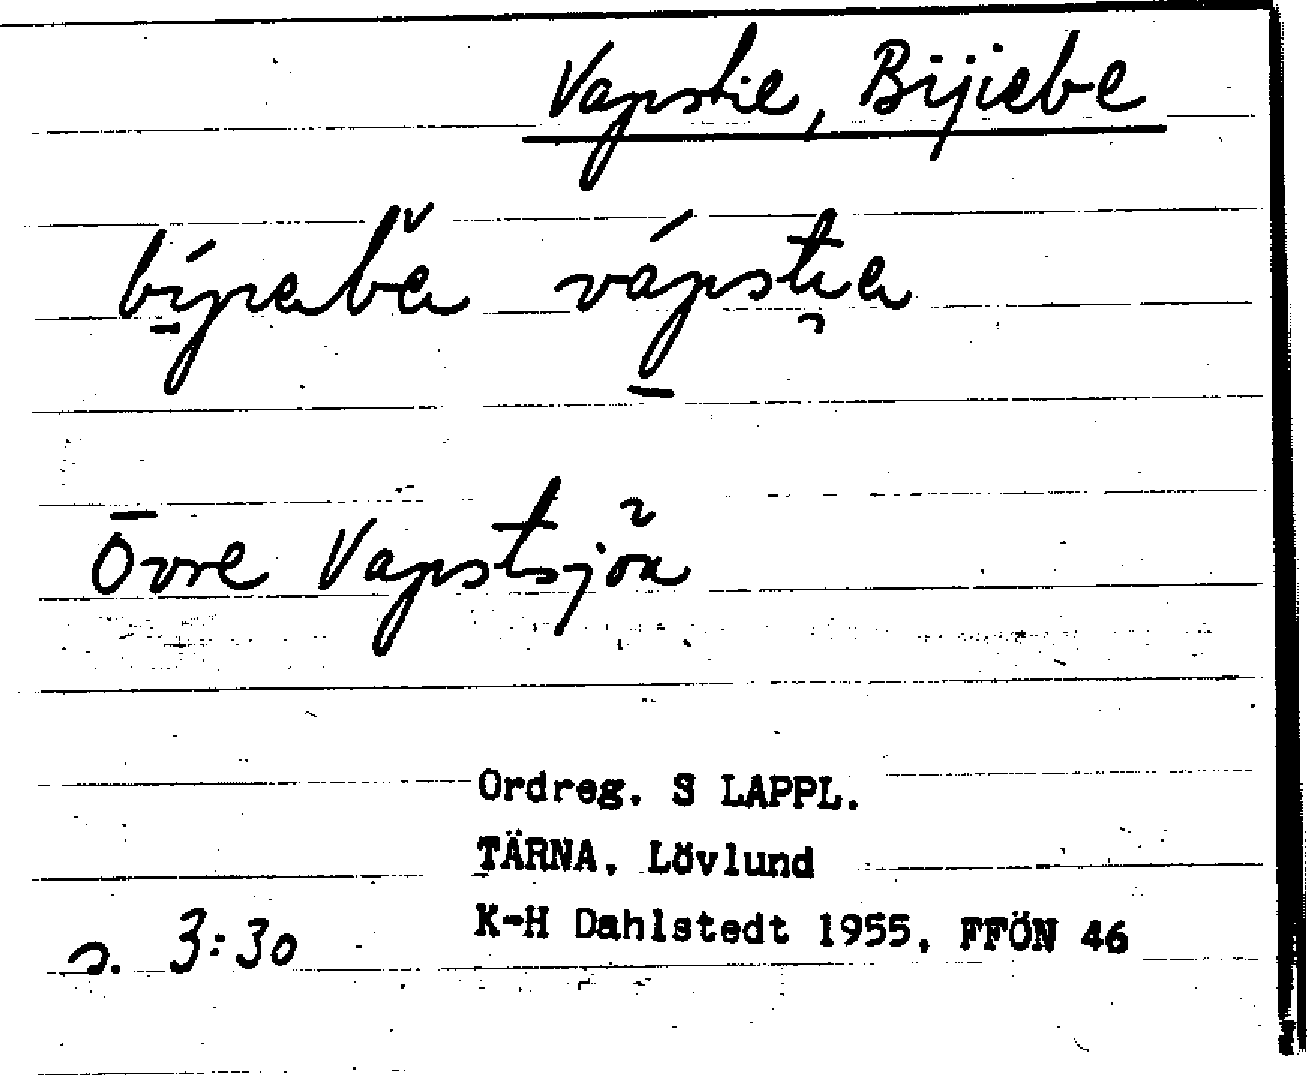 Vapstie, Bijiebe
bíjiebĕ vápstie
Övre Vapstsjön
Ordreg. S LAPPL.
TÄRNA. Lövlund
K-H Dahlstedt 1955. FFÖN 46
s. 3:30